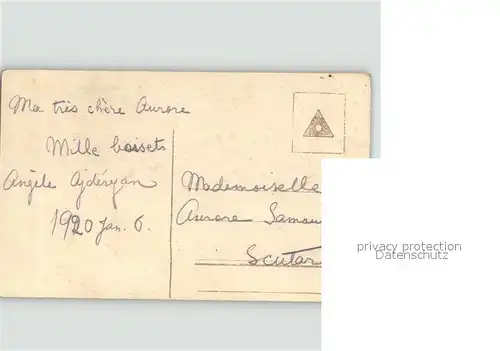 Ma très chère Aurore
Mille baisers
Angèle Ajdéryan
1920 Jan. 6.
Mademoiselle
Aurore Samou
Scutar
privacy protection
Datenschutz